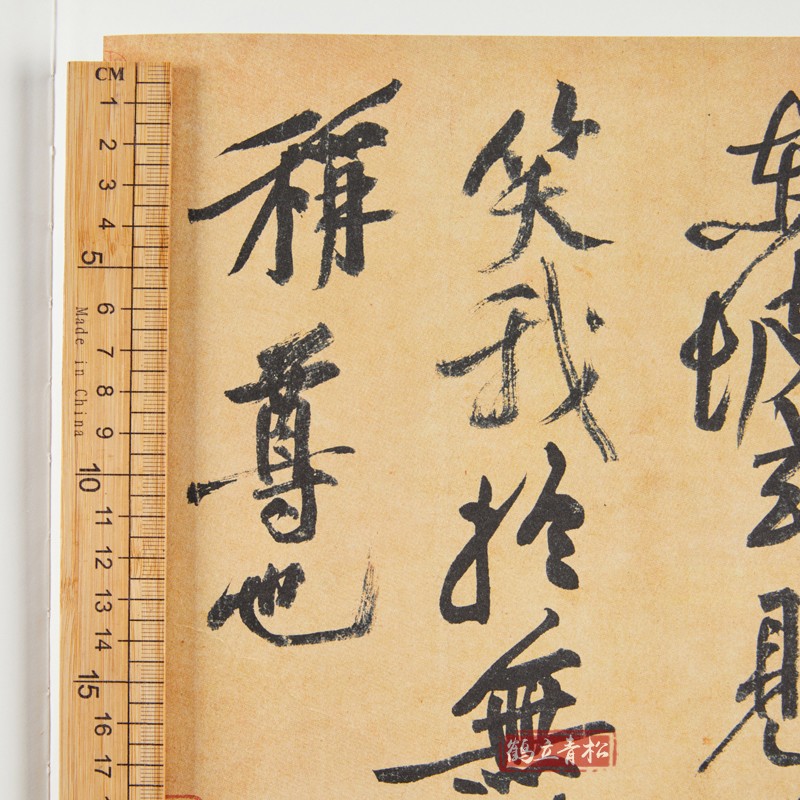 東坡或見
笑我於無
稱尊也
CM
1 2 3 4 5 6 7 8 9 10 11 12 13 14 15 16 17
Made in China
鹤立青松